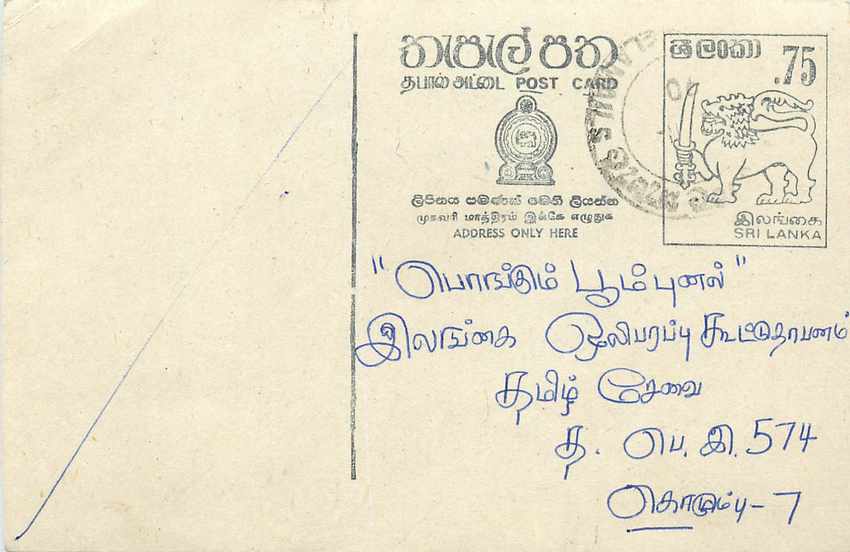 තැපැල් පත
தபால் அட்டை POST CARD
ලිපිනය පමණක් මෙහි ලියන්න
முகவரி மாத்திரம் இங்கே எழுதுக
ADDRESS ONLY HERE
ශ්‍රී ලංකා
.75
இலங்கை
SRI LANKA
"பொங்கும் பூம்புனல்"
இலங்கை ஒலிபரப்பு கூட்டுதாபனம்
தமிழ் சேவை
த. பெ. இ. 574
கொழும்பு - 7